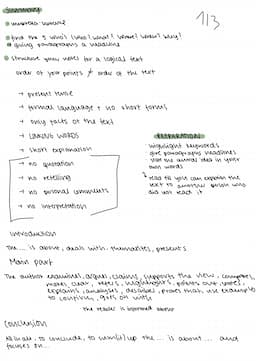 Summary
1/3
find the 5 who's (who? what? where? when? why?
giving paragraphs a headline
structure your notes for a logical text
order of your points ≠ order of the text
→ present tense
→ formal language + no short forms
→ only facts of the text
→ words
→ short explanation
→ no quotation
→ no retelling
→ no personal comments
→ no interpretation
PREPARATION
highlight keywords
give paragraphs headlines
idea in your
own words
explain the
text to another person who
did not read it
Introduction
The... is about, deals with, presents
Main part
The author examines, argues, claims, supports the view, compares,
makes clear, refers, highlights, points out, states,
explains, analyses, describes, proves that, use examples
to confirm, goes on with
the reader is informed about
Conclusion
to conclude, to sum (it) up the ... is about ... and
focuses on...